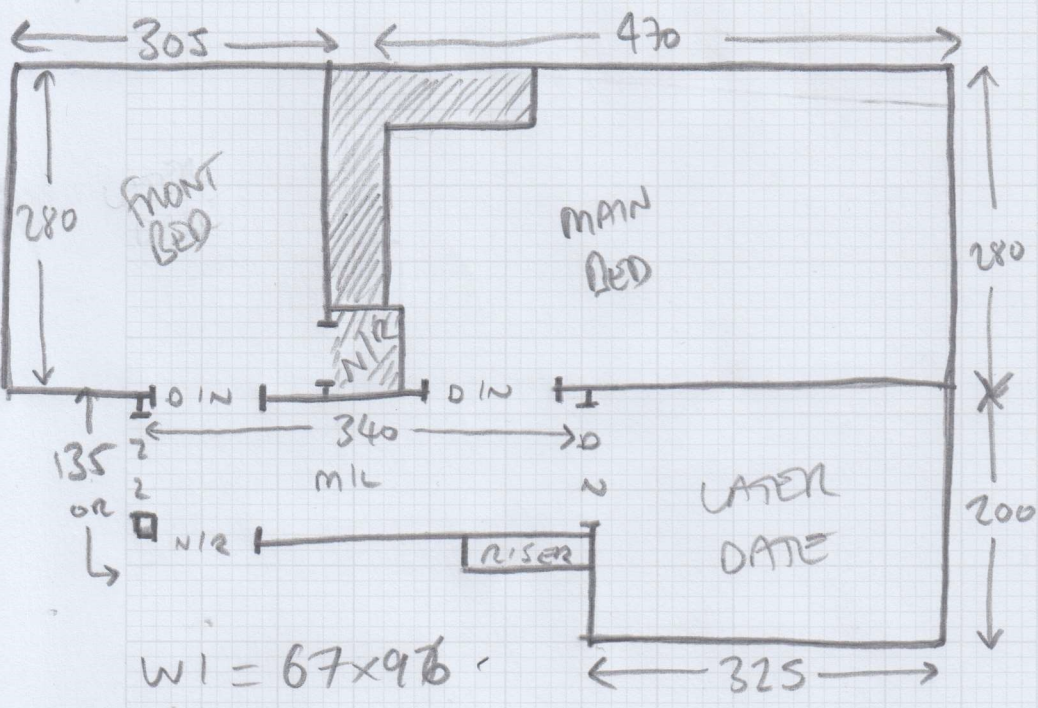 305
470
280
FRONT
BED
MAIN
BED
280
N/R
D IN
D IN
340
D
N
M/L
135
OR
2
2
N/R
RISER
LATER
DATE
200
325